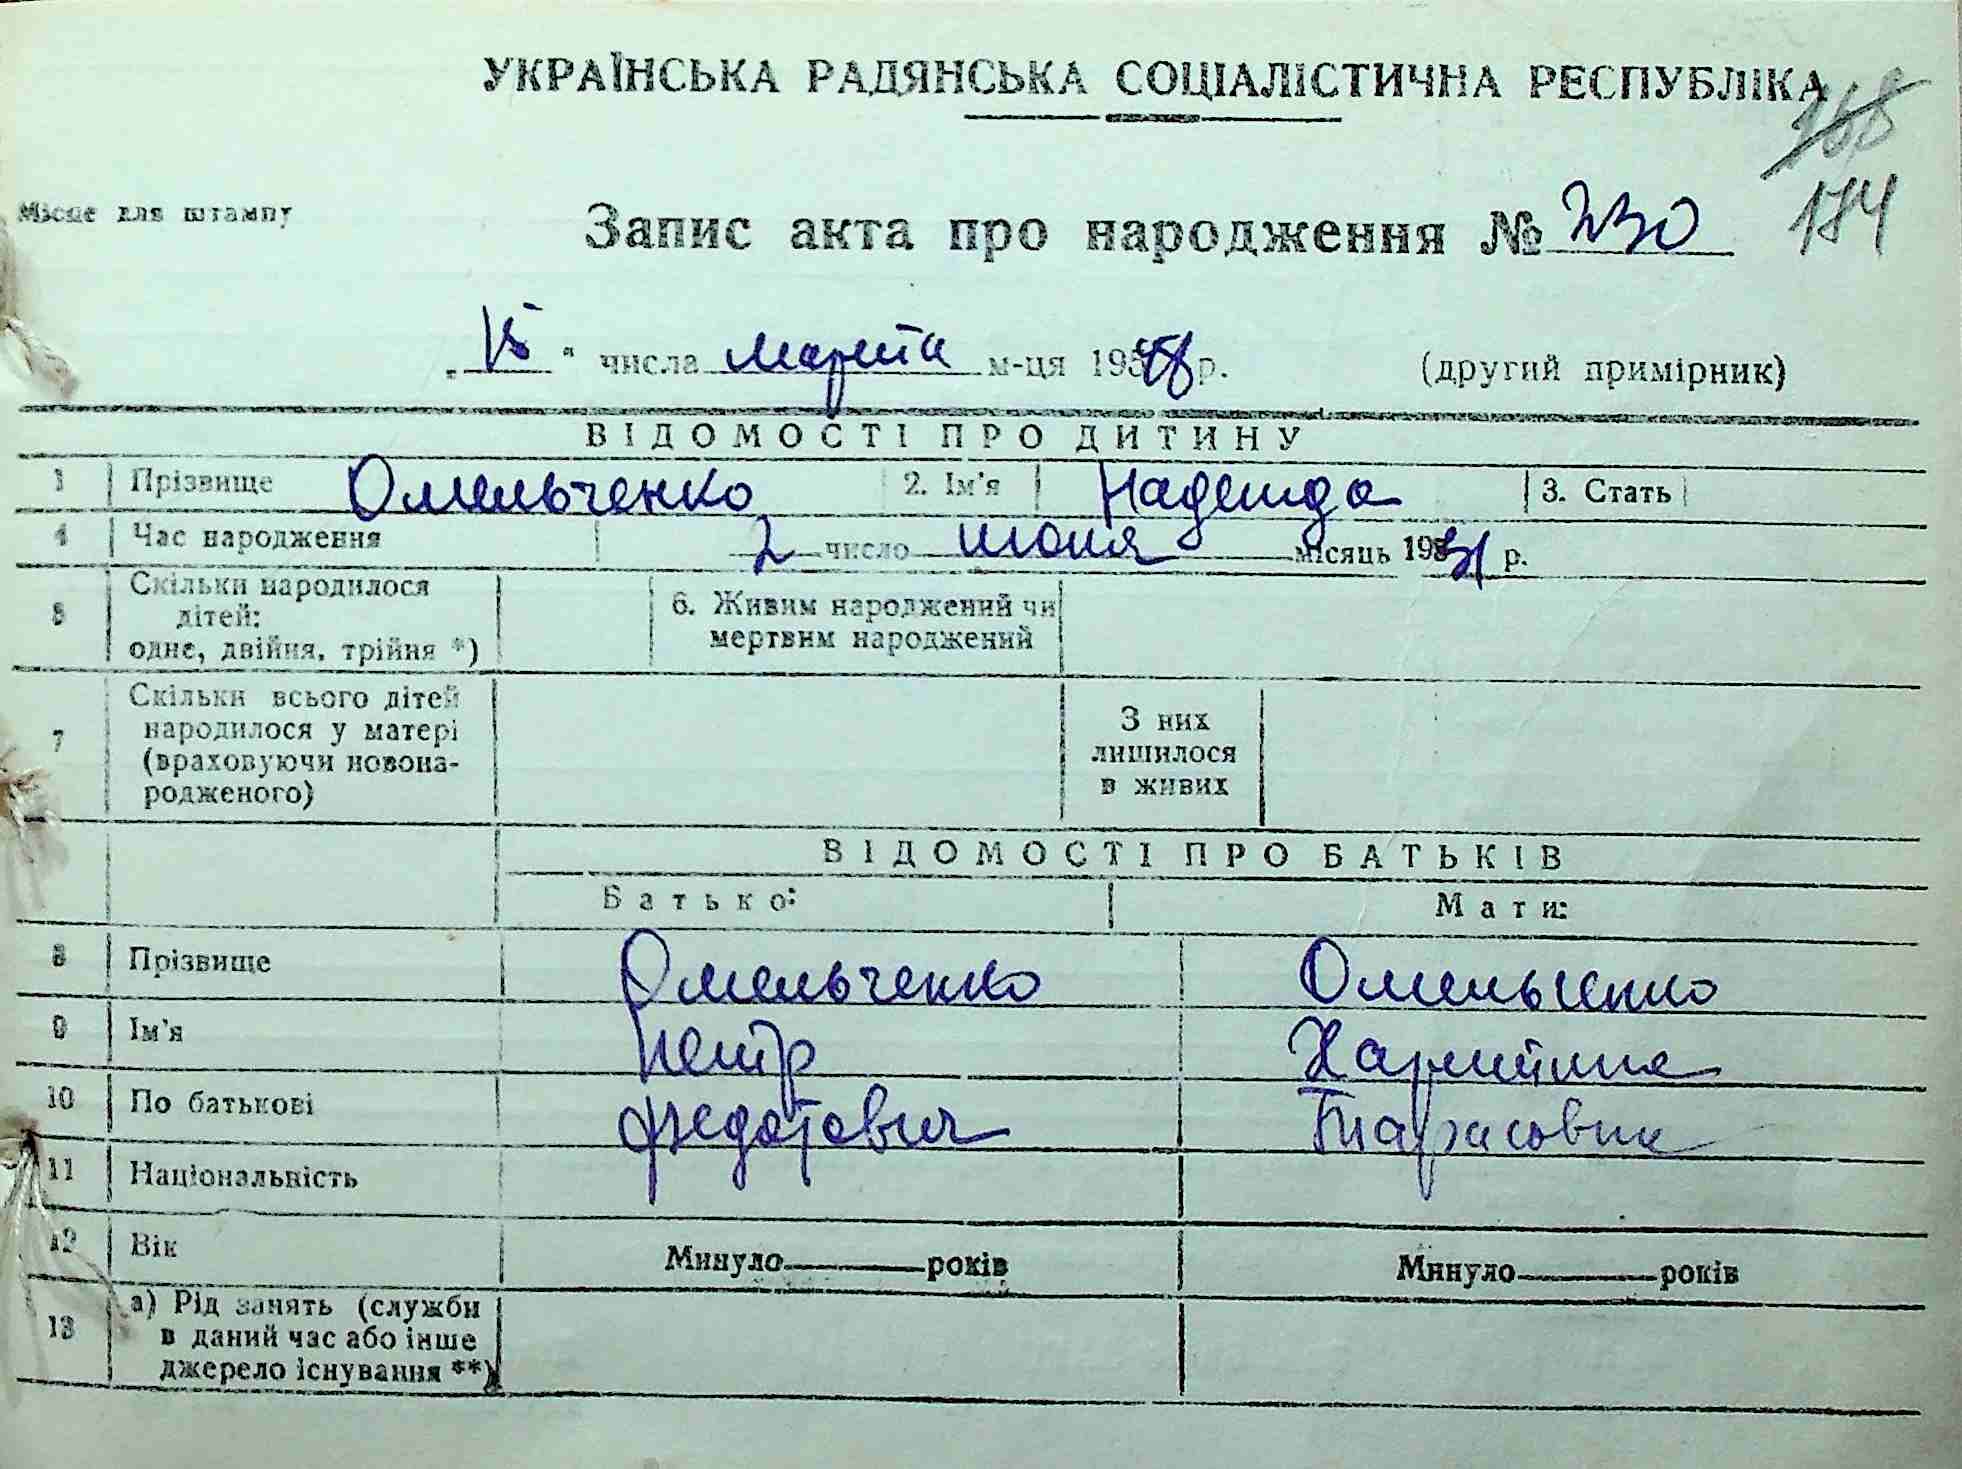 УКРАЇНСЬКА РАДЯНСЬКА СОЦІАЛІСТИЧНА РЕСПУБЛІКА
168
174
Місце для штампу
Запис акта про народження № 230
„ 15 " числа марта м-ця 1958 р. (другий примірник)
ВІДОМОСТІ ПРО ДИТИНУ
1 Прізвище Омельченко 2. Ім'я Надежда 3. Стать
4 Час народження 2 число июня місяць 1931 р.
5 Скільки народилося дітей: одне, двійня, трійня *) 6. Живим народжений чи мертвим народжений
7 Скільки всього дітей народилося у матері (враховуючи новонародженого) З них лишилося в живих
ВІДОМОСТІ ПРО БАТЬКІВ
Батько: Мати:
8 Прізвище Омельченко Омельченко
9 Ім'я Петр Харитина
10 По батькові Федотович Тарасовна
11 Національність
12 Вік Минуло років Минуло років
13 а) Рід занять (служби в даний час або інше джерело існування **)